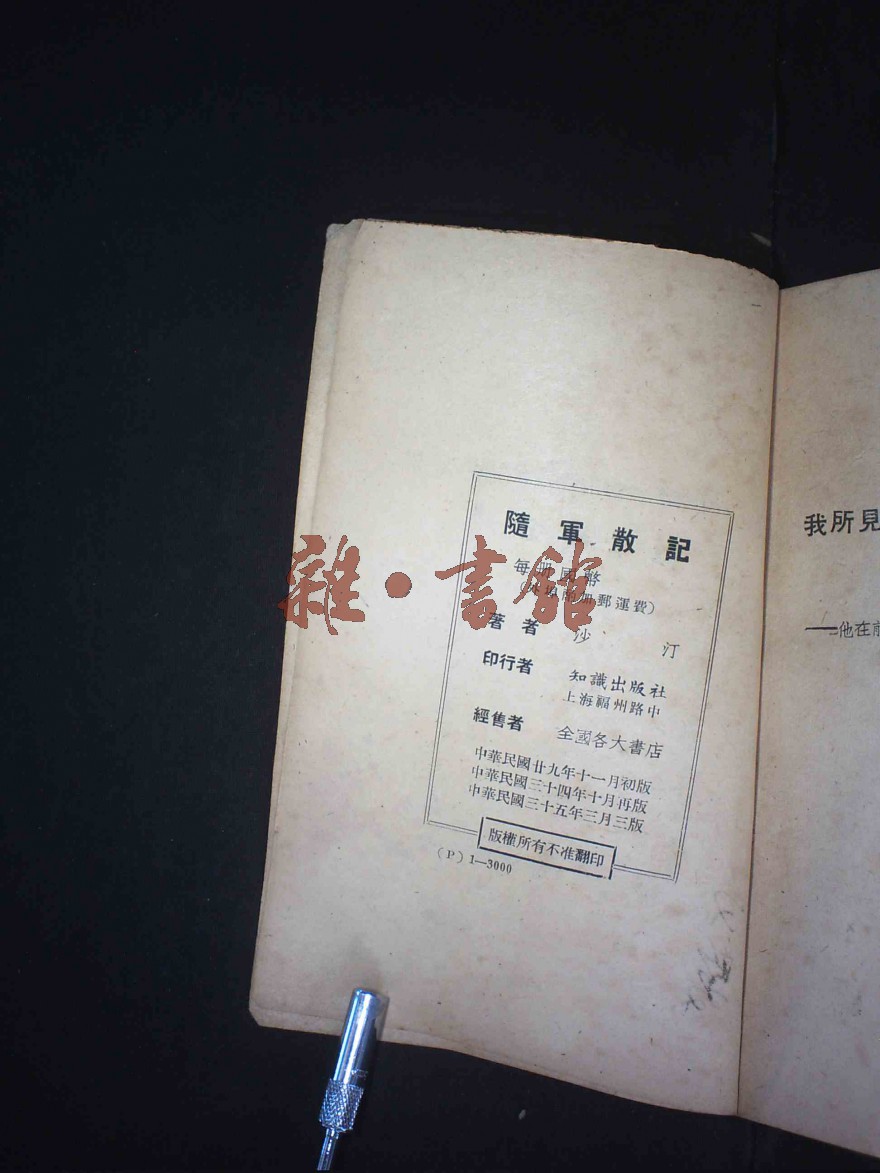 隨軍散記
每冊國幣
(外埠酌加郵運費)
著者 沙汀
印行者 知識出版社
上海福州路中
經售者 全國各大書店
中華民國廿九年十一月初版
中華民國三十四年十月再版
中華民國三十五年三月三版
版權所有不准翻印
(P) 1—3000
我所見
——他在前
雜·書館